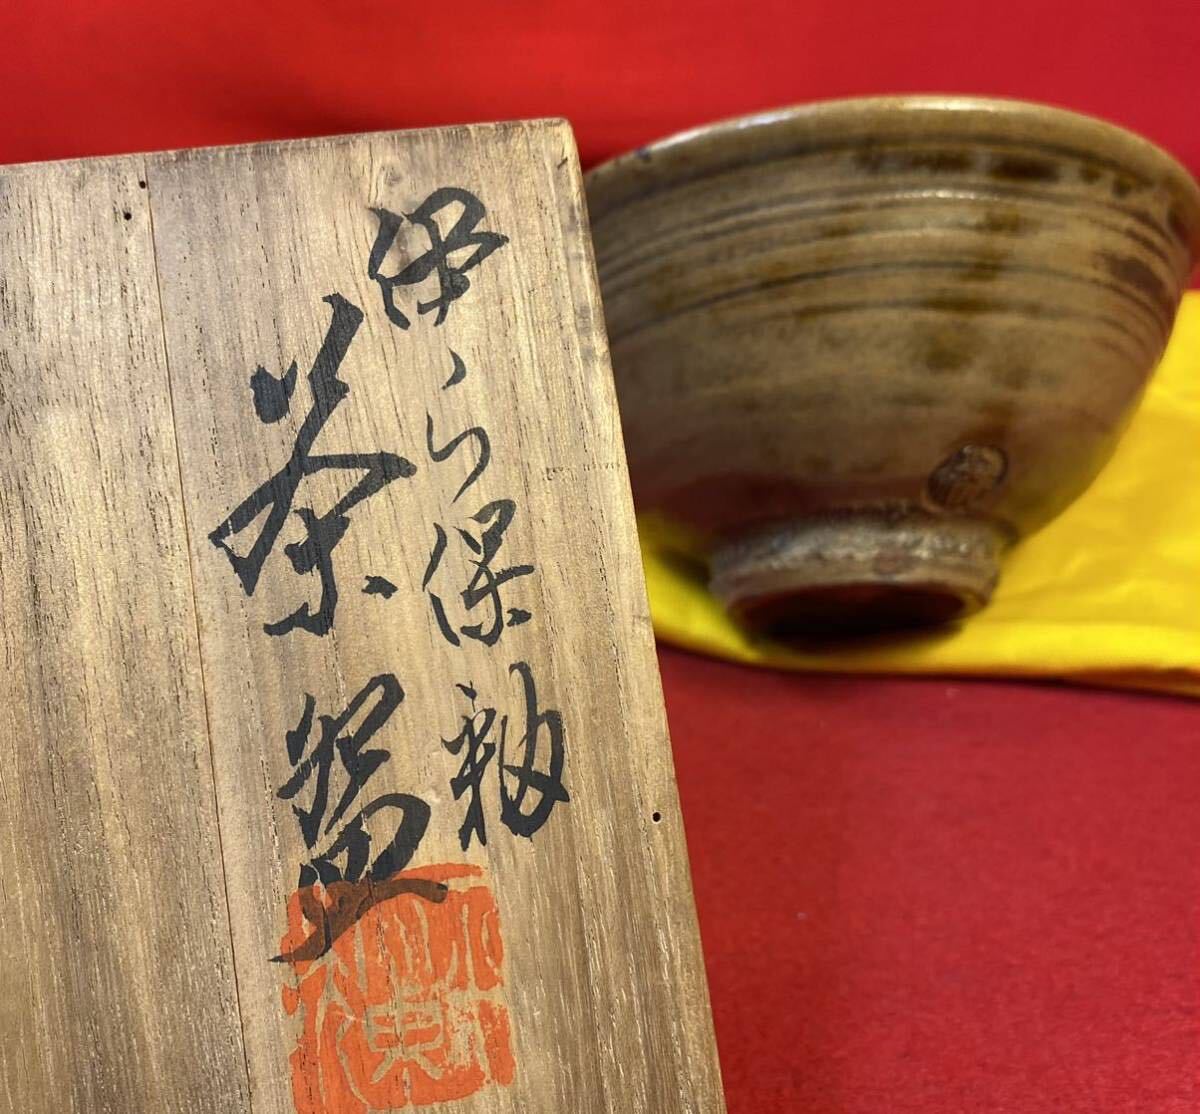 伊ら保釉
茶盌